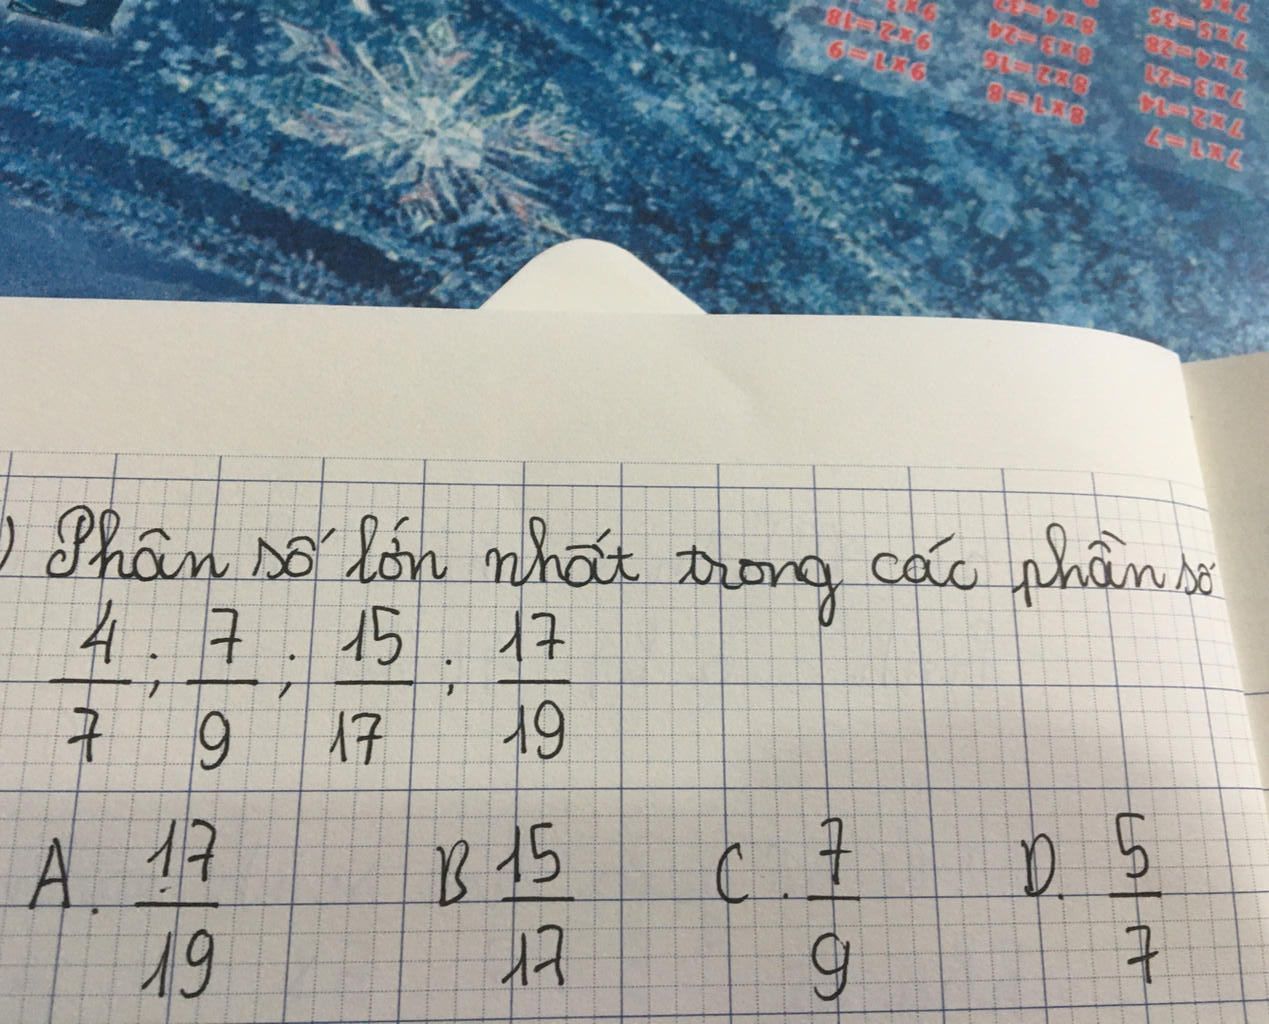 9x2=18
9x1=9
8x4=32
8x3=24
8x2=16
8x1=8
7x5=35
7x4=28
7x3=21
7x2=14
7x1=7
) Phân số lớn nhất trong các phân số
4/7 ; 7/9 ; 15/17 ; 17/19
A. 17/19 B 15/17 C. 7/9 D. 5/7